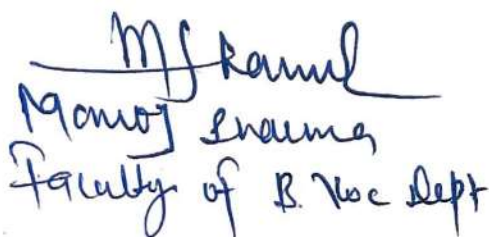 Manoj Sharma
Faculty of B. Voc Dept